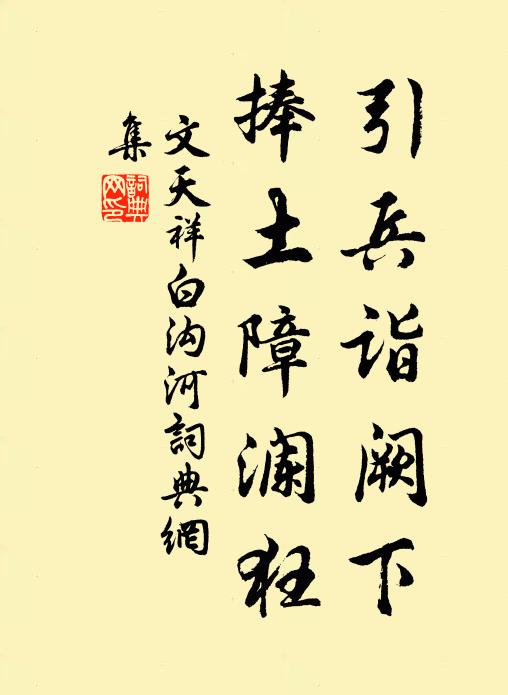 引兵诣阙下
捧土障澜狂
文天祥白沟河詞典網
集
詞典網印